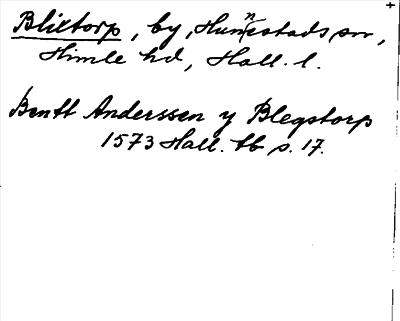 Blixtorp, by, Hunnestads sn,
Himle hd, Hall. l.
Bentt Anderssen y Blegstorp
1573 Hall. tb s. 17.